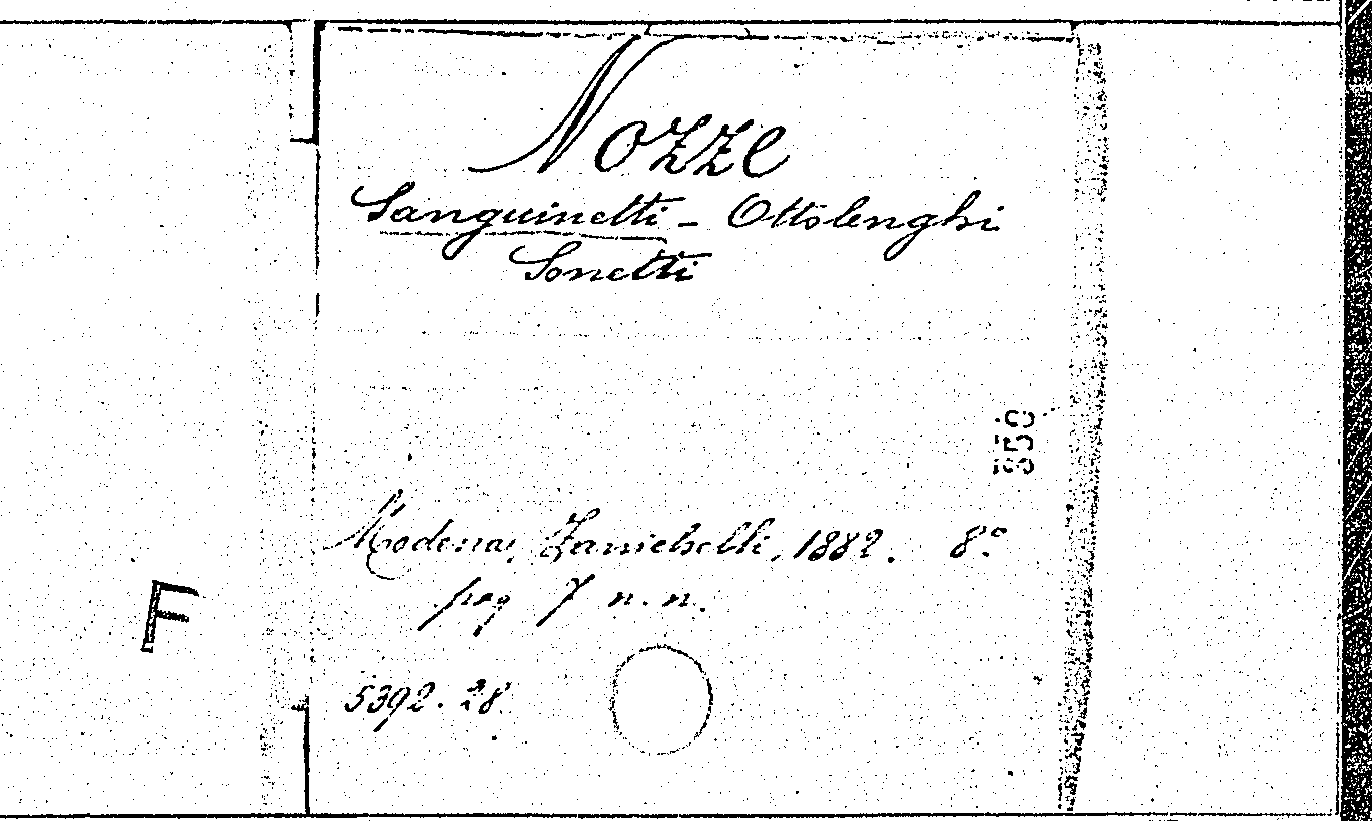 Nozze
Sanguinetti - Ottolenghi
Sonetti
850
Modena, Zanichelli, 1882. 8.º
pag 7 n. n.
F
5392. 28.